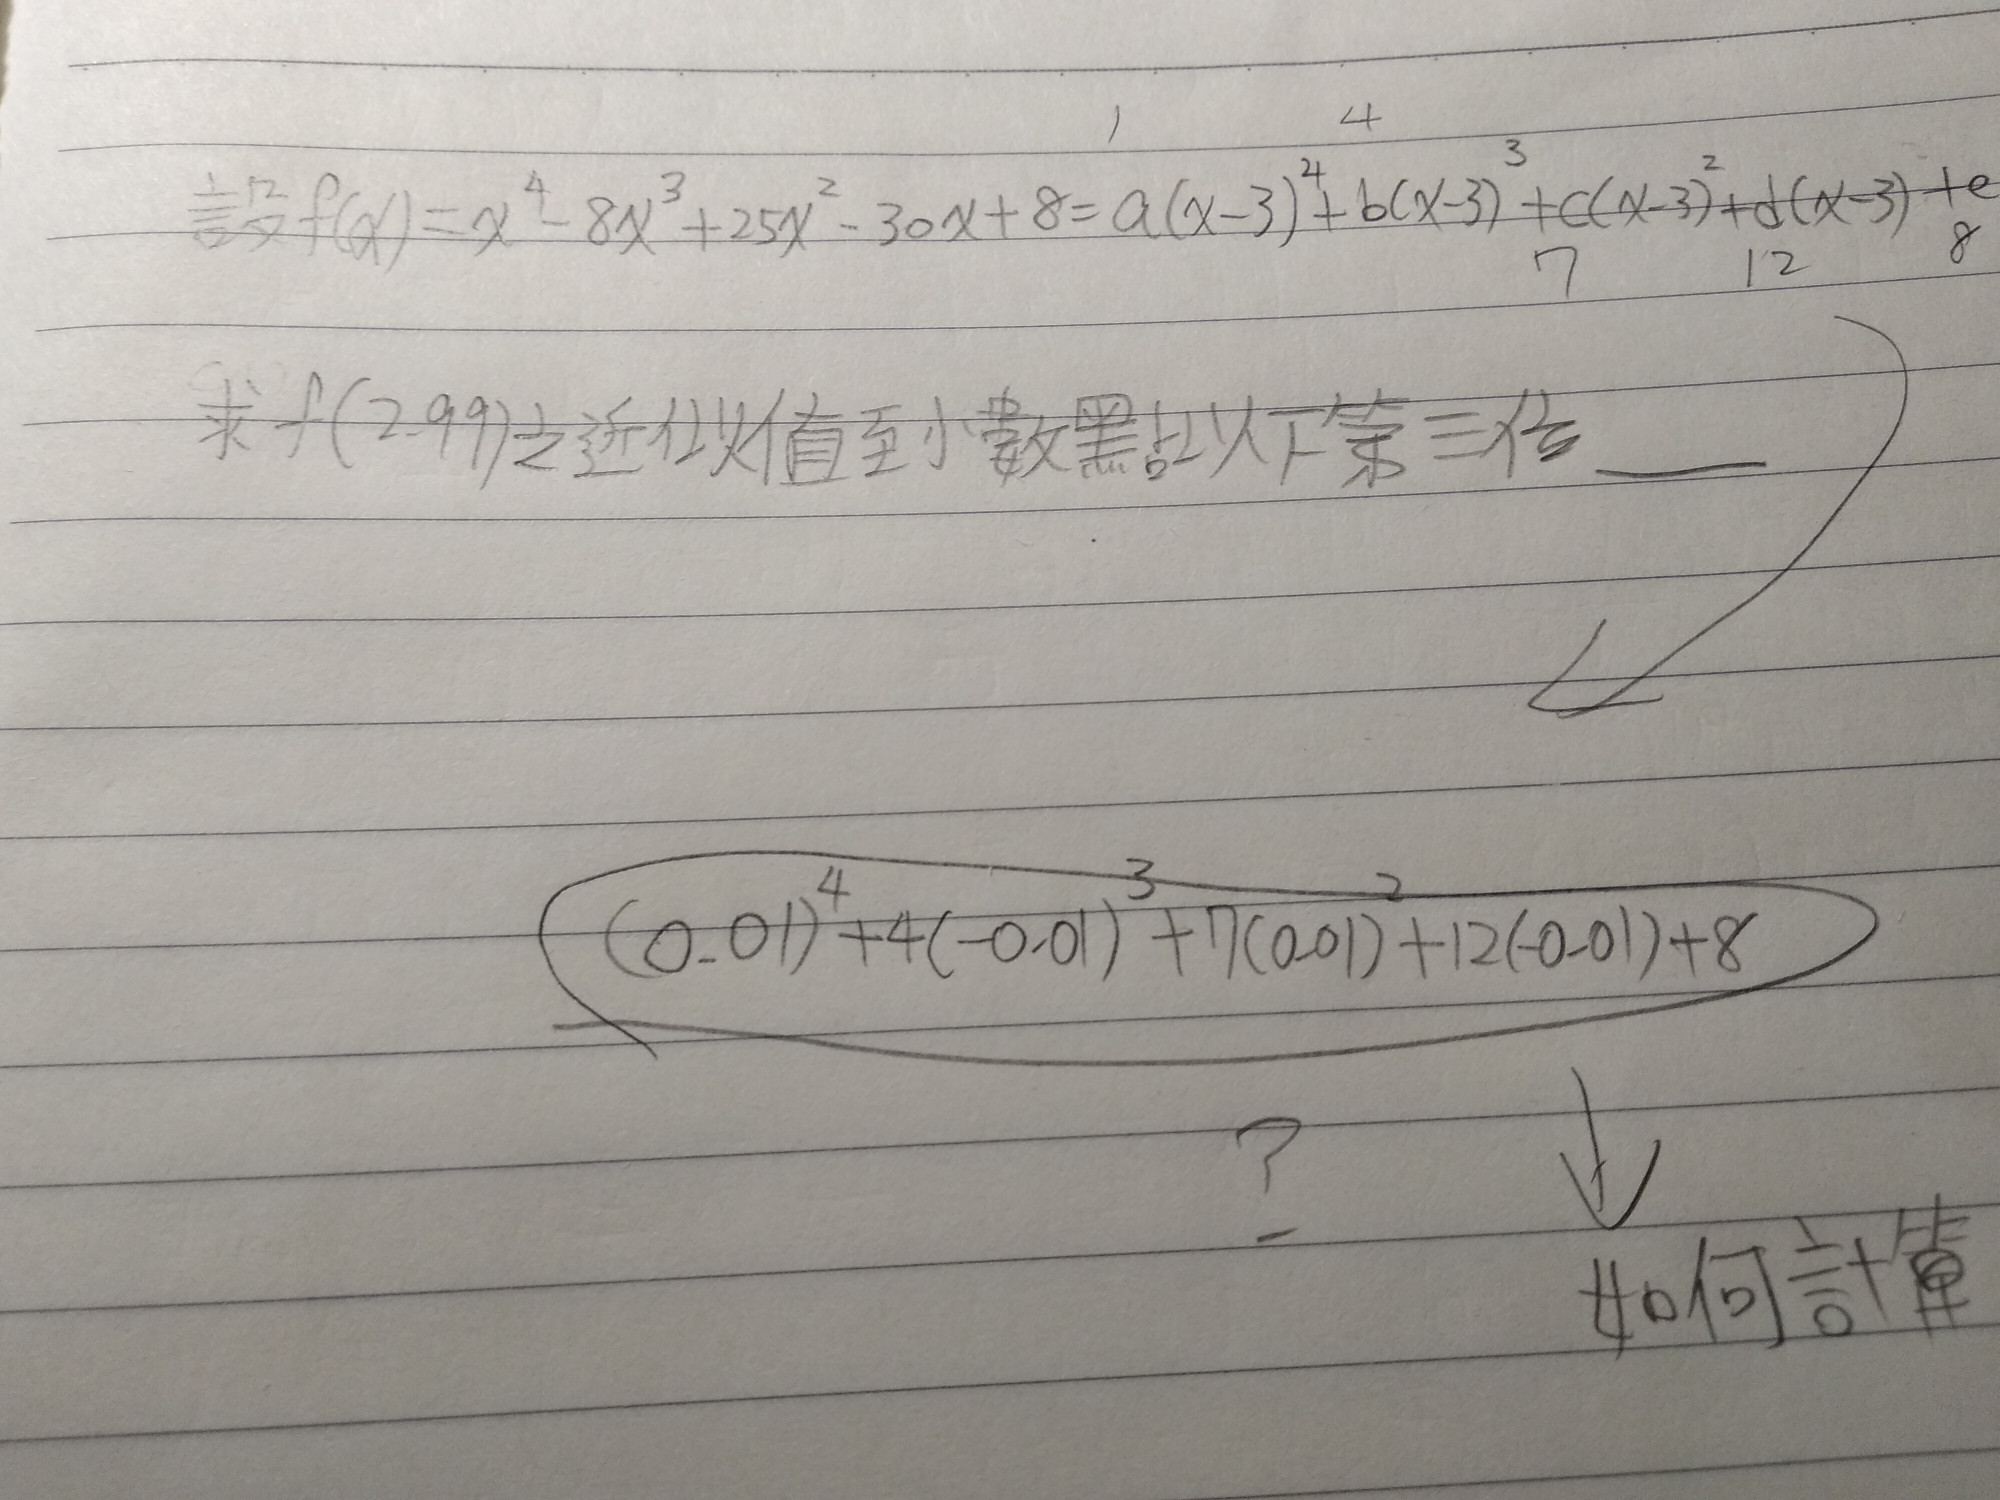 1 4
設f(x)=x⁴-8x³+25x²-30x+8=a(x-3)⁴+b(x-3)³+c(x-3)²+d(x-3)+e
7 12 8
求f(2.99)之近似值至小數點以下第三位____
(0.01)⁴+4(-0.01)³+7(0.01)²+12(-0.01)+8
?
如何計算